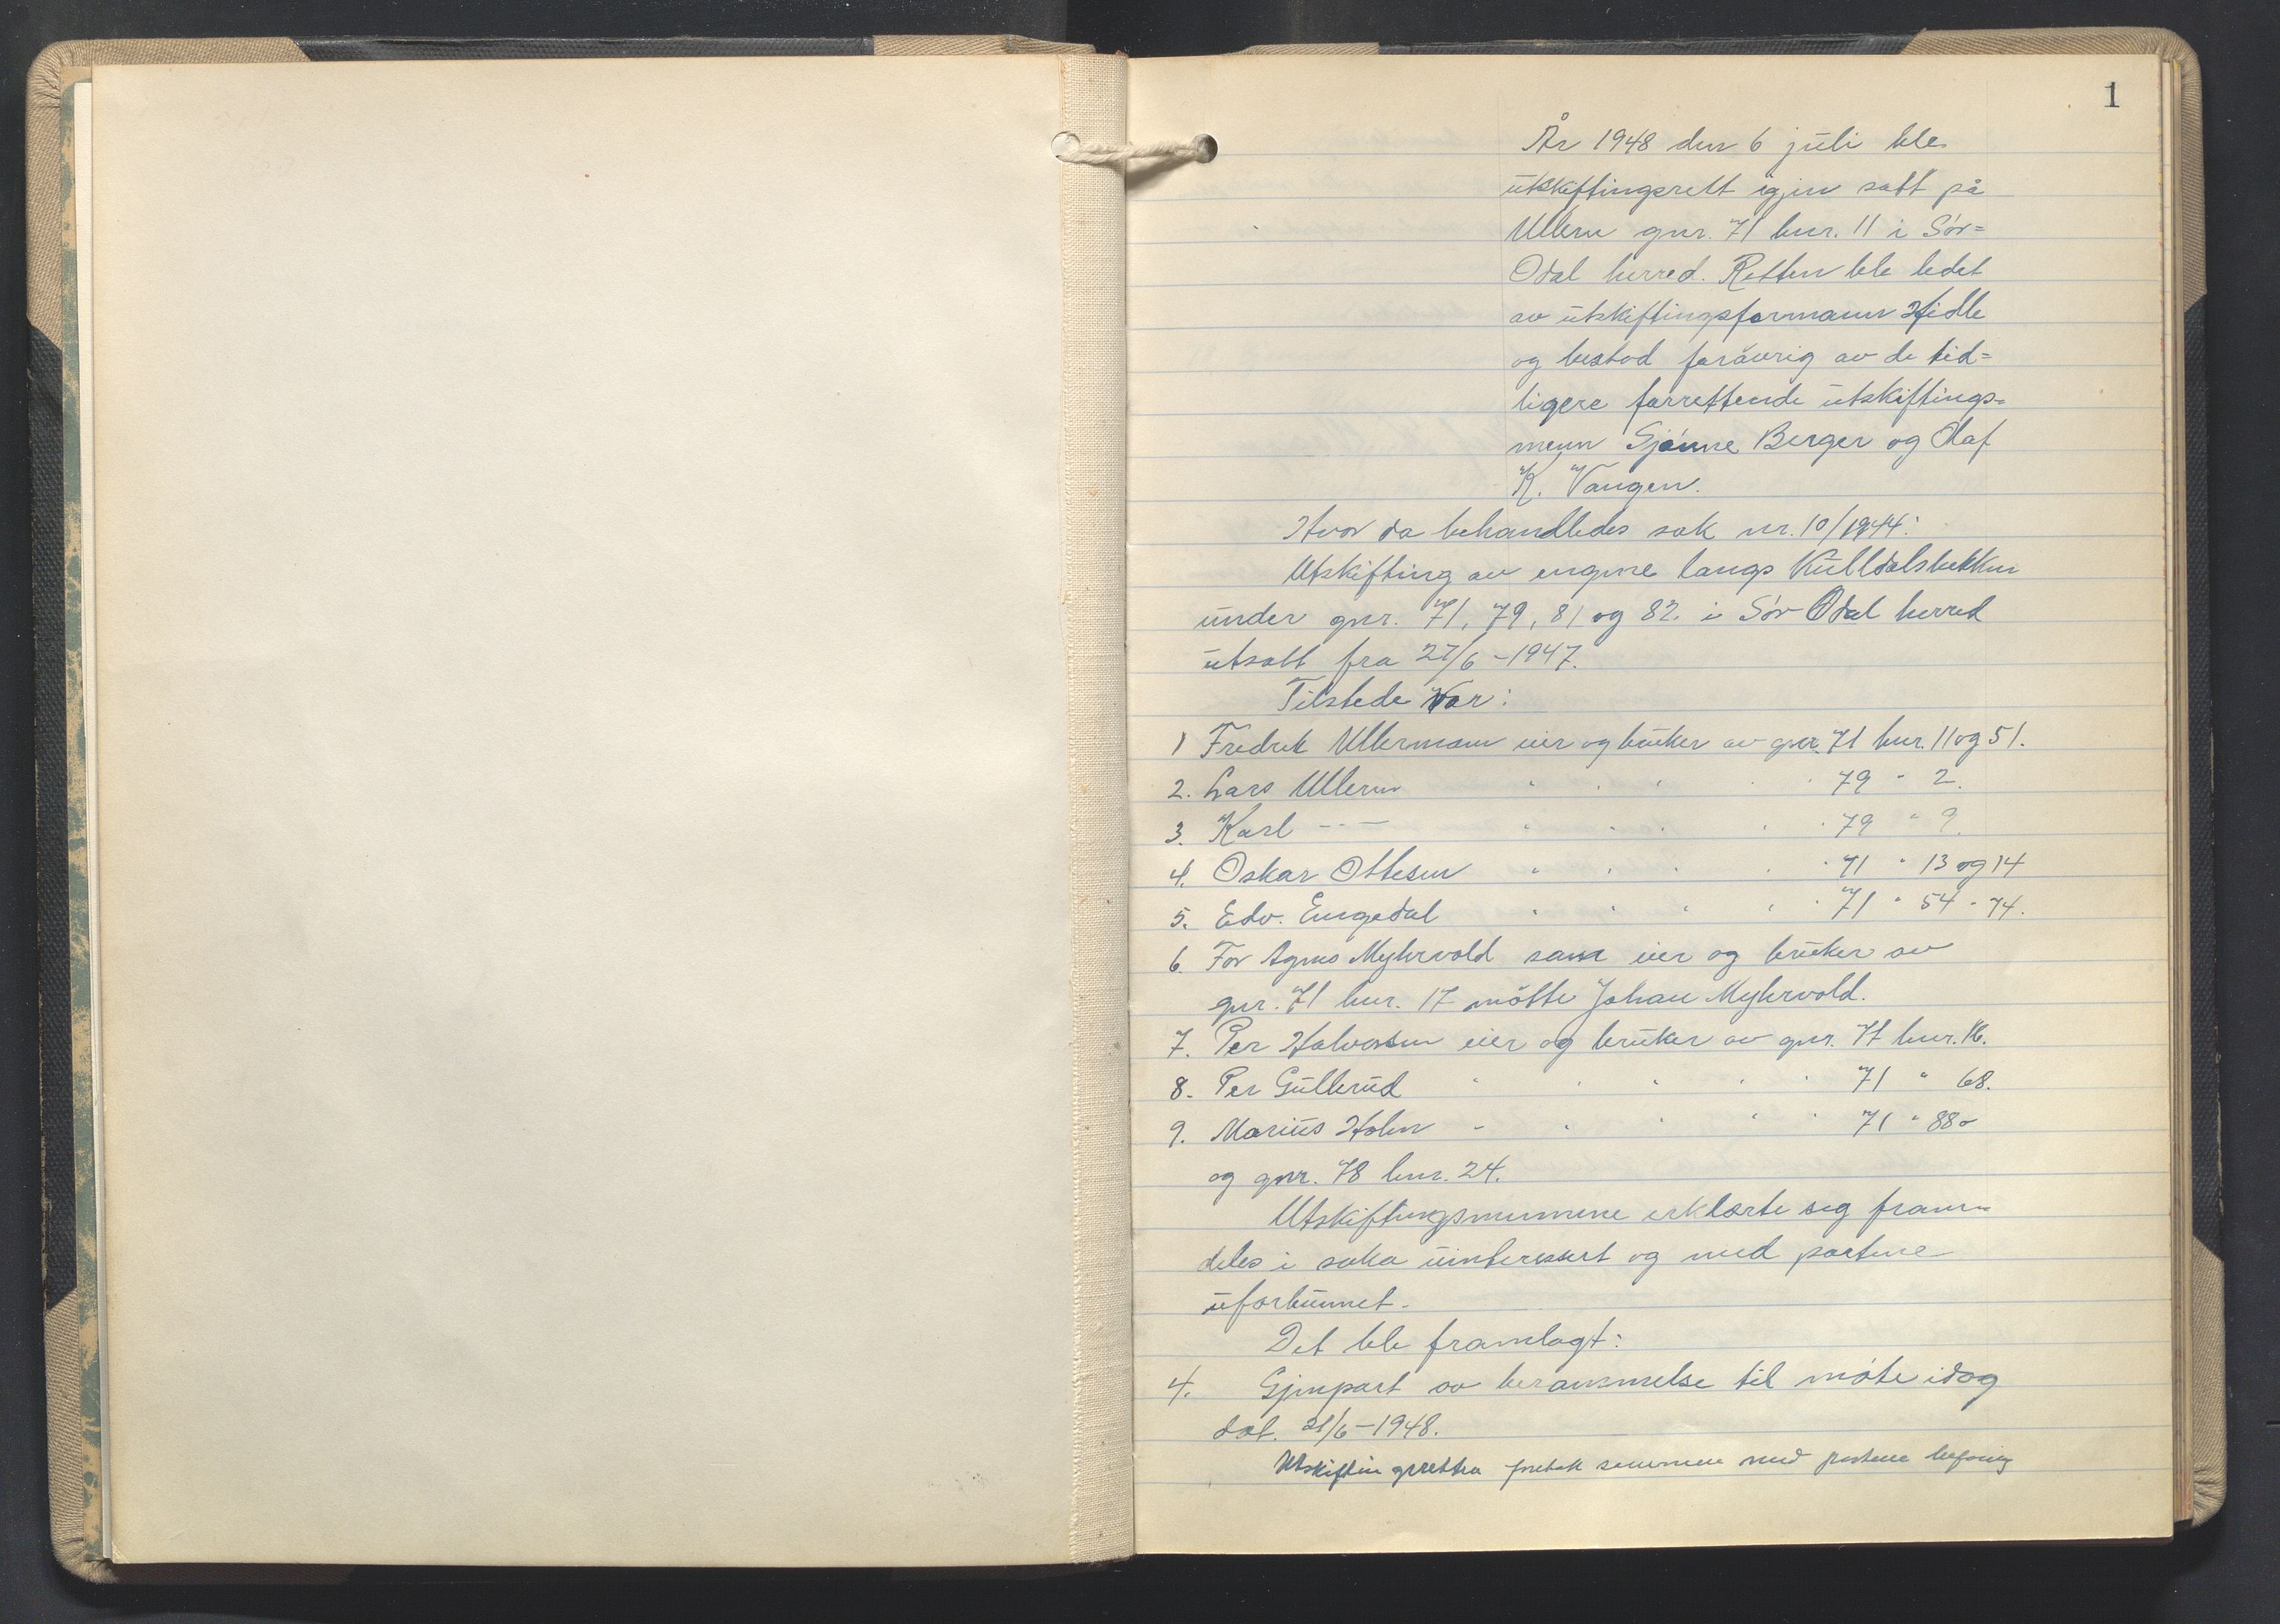 1
År 1948 den 6 juli ble
utskiftingsrett igjen satt på
Ullern gnr. 71 bnr. 11 i Sør=
Odal herred. Retten ble ledet
av utskiftingsformann Hidle
og bestod forøvrig av de tid=
ligere forrettende utskiftings=
menn Gjønne Berger og Olaf
K. Vangen.
Hvor da behandledes sak nr. 10/1944:
Utskifting av engene langs Kulldalsbekken
under gnr. 71, 79, 81 og 82 i Sør-Odal herred
utsatt fra 27/6-1947.
Tilstede var:
1 Fredrik Ullernmoen eier og bruker av gnr. 71 bnr. 11 og 51.
2. Lars Ullern " " " " " 79 " 2.
3. Karl -"- " " " " " 79 " 9.
4. Oskar Ottesen " " " " " 71 " 13 og 14
5. Edv. Engedal " " " " " 71 " 54 " 74.
6. For Agnes Myhrvold som eier og bruker av
gnr. 71 bnr. 17 møtte Johan Myhrvold.
7. Per Halvorsen eier og bruker av gnr. 71 bnr. 16.
8. Per Gullerud " " " " " 71 " 68.
9. Marius Holen " " " " " 71 " 88
og gnr. 78 bnr. 24.
Utskiftingsmennene erklærte seg frem-
deles i saka uinteressert og med partene
uforbunnet.
Det ble framlagt:
4. Gjenpart av berammelse til møte idag
dat. 21/6-1948.
Utskiftingsretten foretok sammen med partene befaring